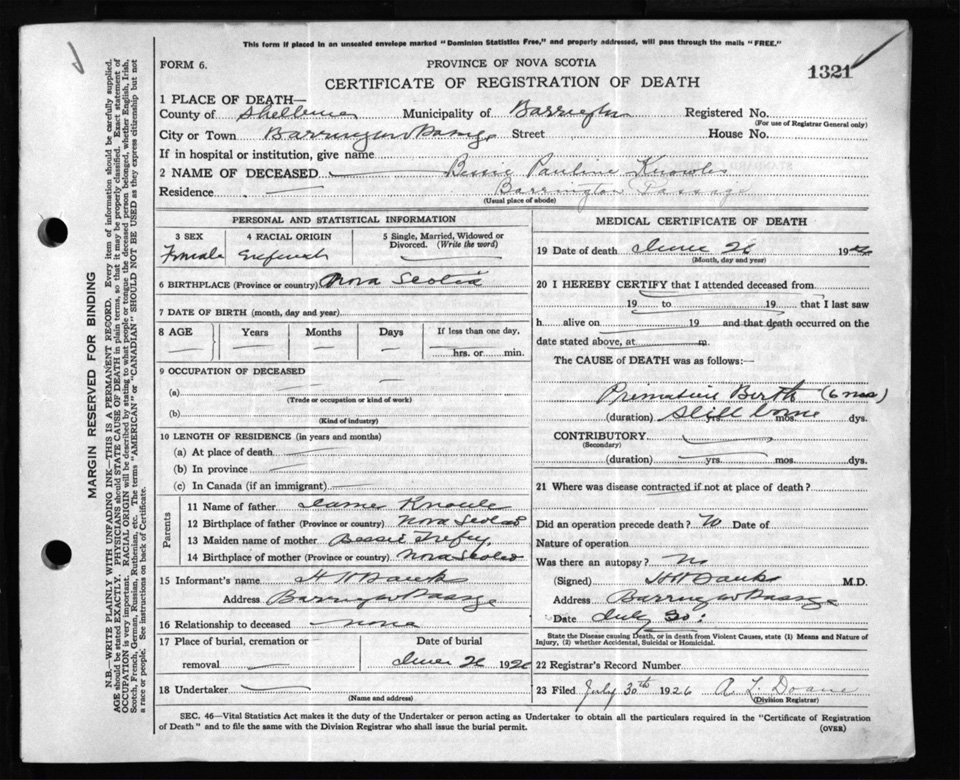 This form if placed in an unsealed envelope marked "Dominion Statistics Free," and properly addressed, will pass through the mails "FREE."
FORM 6.
PROVINCE OF NOVA SCOTIA
1321
CERTIFICATE OF REGISTRATION OF DEATH
1 PLACE OF DEATH—
County of Shelburne Municipality of Barrington Registered No.
(For use of Registrar General only)
City or Town Barrington Passage Street House No.
If in hospital or institution, give name
2 NAME OF DECEASED Bessie Pauline Knowles
Residence Barrington Passage
(Usual place of abode)
PERSONAL AND STATISTICAL INFORMATION
3 SEX 4 RACIAL ORIGIN 5 Single, Married, Widowed or Divorced. (Write the word)
Female
6 BIRTHPLACE (Province or country) Nova Scotia
7 DATE OF BIRTH (month, day and year)
8 AGE Years Months Days If less than one day,
hrs. or min.
9 OCCUPATION OF DECEASED
(a)
(Trade or occupation or kind of work)
(b)
(Kind of industry)
10 LENGTH OF RESIDENCE (in years and months)
(a) At place of death
(b) In province
(c) In Canada (if an immigrant)
Parents
11 Name of father James Knowle
12 Birthplace of father (Province or country) Nova Scotia
13 Maiden name of mother Bessie
14 Birthplace of mother (Province or country) Nova Scotia
15 Informant's name
Address Barrington Passage
16 Relationship to deceased none
17 Place of burial, cremation or removal
Date of burial
June 26 1926
18 Undertaker
(Name and address)
MEDICAL CERTIFICATE OF DEATH
19 Date of death June 26 19
(Month, day and year)
20 I HEREBY CERTIFY that I attended deceased from
19 to 19 that I last saw
h alive on 19 and that death occurred on the
date stated above, at m.
The CAUSE of DEATH was as follows:—
Premature Birth (6 mos)
(duration) Still borne yrs. mos. dys.
CONTRIBUTORY
(Secondary)
(duration) yrs. mos. dys.
21 Where was disease contracted if not at place of death?
Did an operation precede death? No Date of
Nature of operation
Was there an autopsy? No
(Signed) M.D.
Address Barrington Passage
Date July 30
State the Disease causing Death, or in death from Violent Causes, state (1) Means and Nature of Injury, (2) whether Accidental, Suicidal or Homicidal.
22 Registrar's Record Number
23 Filed July 30th 1926 R L Doane
(Division Registrar)
SEC. 46—Vital Statistics Act makes it the duty of the Undertaker or person acting as Undertaker to obtain all the particulars required in the "Certificate of Registration
of Death" and to file the same with the Division Registrar who shall issue the burial permit.
(OVER)
MARGIN RESERVED FOR BINDING
N.B.—WRITE PLAINLY WITH UNFADING INK—THIS IS A PERMANENT RECORD. Every item of information should be carefully supplied.
AGE should be stated EXACTLY. PHYSICIANS should STATE CAUSE OF DEATH in plain terms, so that it may be properly classified. Exact statement of
OCCUPATION is very important. RACIAL ORIGIN will be described by stating to what people or tongue the deceased person belonged, whether English, Irish,
Scotch, French, German, Russian, Ruthenian, etc. The terms "AMERICAN" or "CANADIAN" SHOULD NOT BE USED as they express citizenship but not
a race or people. See instructions on back of Certificate.